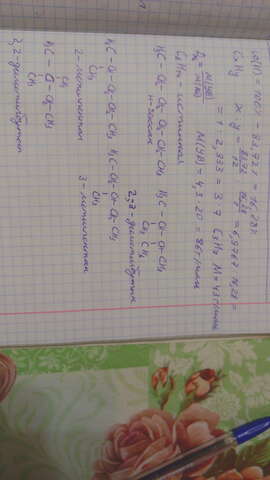 ω(H) = 100% - 83,72% = 16,28%
CxHy x : y = 83,72/12 : 16,28/1 = 6,9767 : 16,28 =
= 1 : 2,333 = 3 : 7 C₃H₇ M = 43 г/моль
M(УВ) = 4,3 · 20 = 86 г/моль
C₆H₁₄ - истинная
H₃C - CH₂ - CH₂ - CH₂ - CH₂ - CH₃
н-гексан
H₃C - CH - CH - CH₃
CH₃ CH₃
2,3 - диметилбутан
H₃C - CH - CH₂ - CH₂ - CH₃
CH₃
2 - метилпентан
H₃C - CH₂ - CH - CH₂ - CH₃
CH₃
3 - метилпентан
CH₃
H₃C - C - CH₂ - CH₃
CH₃
2,2 - диметилбутан